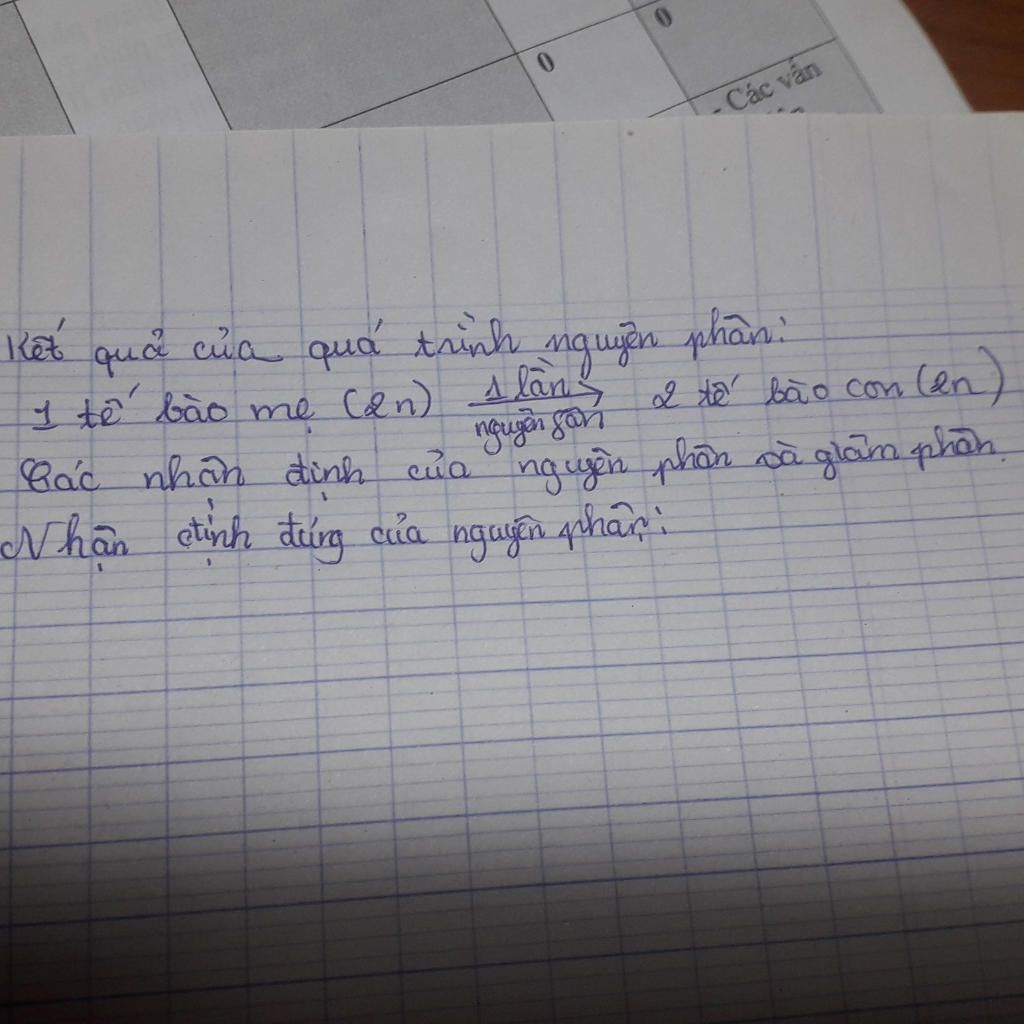 0
0
- Các vấn
Kết quả của quá trình nguyên phân:
1 tế bào mẹ (2n) 1 lần nguyên sân → 2 tế bào con (2n)
Các nhận định của nguyên phân và giảm phân.
Nhận định đúng của nguyên phân: